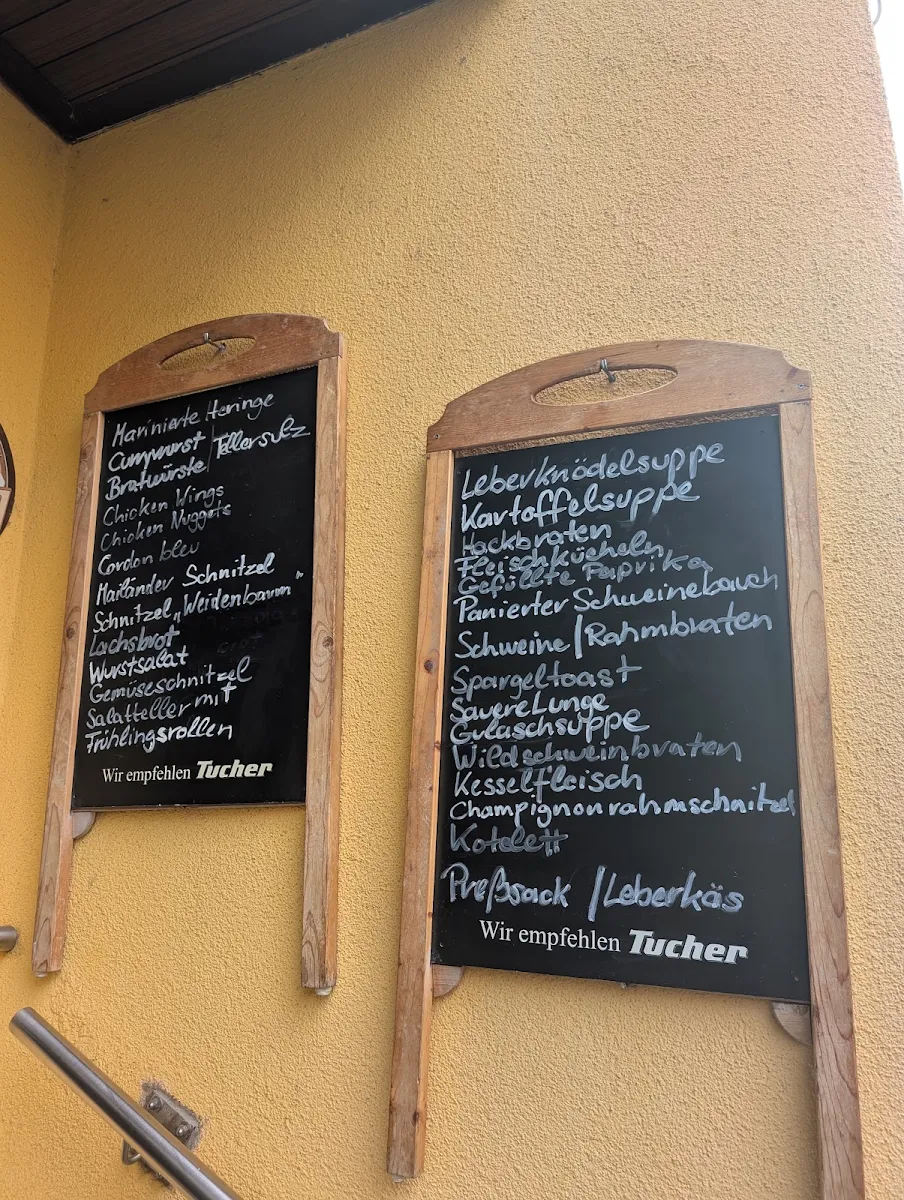 Marinierte Heringe
Currywurst / Tellersulz
Bratwürste
Chicken Wings
Chicken Nuggets
Cordon bleu
Mailänder Schnitzel
Schnitzel „Weidenbaum"
Lachsbrot
Wurstsalat
Gemüseschnitzel
Salatteller mit
Frühlingsrollen
Wir empfehlen Tucher
Leberknödelsuppe
Kartoffelsuppe
Hackbraten
Fleischkücheln
Gefüllte Paprika
Panierter Schweinebauch
Schweine / Rahmbraten
Spargeltoast
Saure Lunge
Gulaschsuppe
Wildschweinbraten
Kesselfleisch
Champignonrahmschnitzel
Kotelett
Preßsack / Leberkäs
Wir empfehlen Tucher